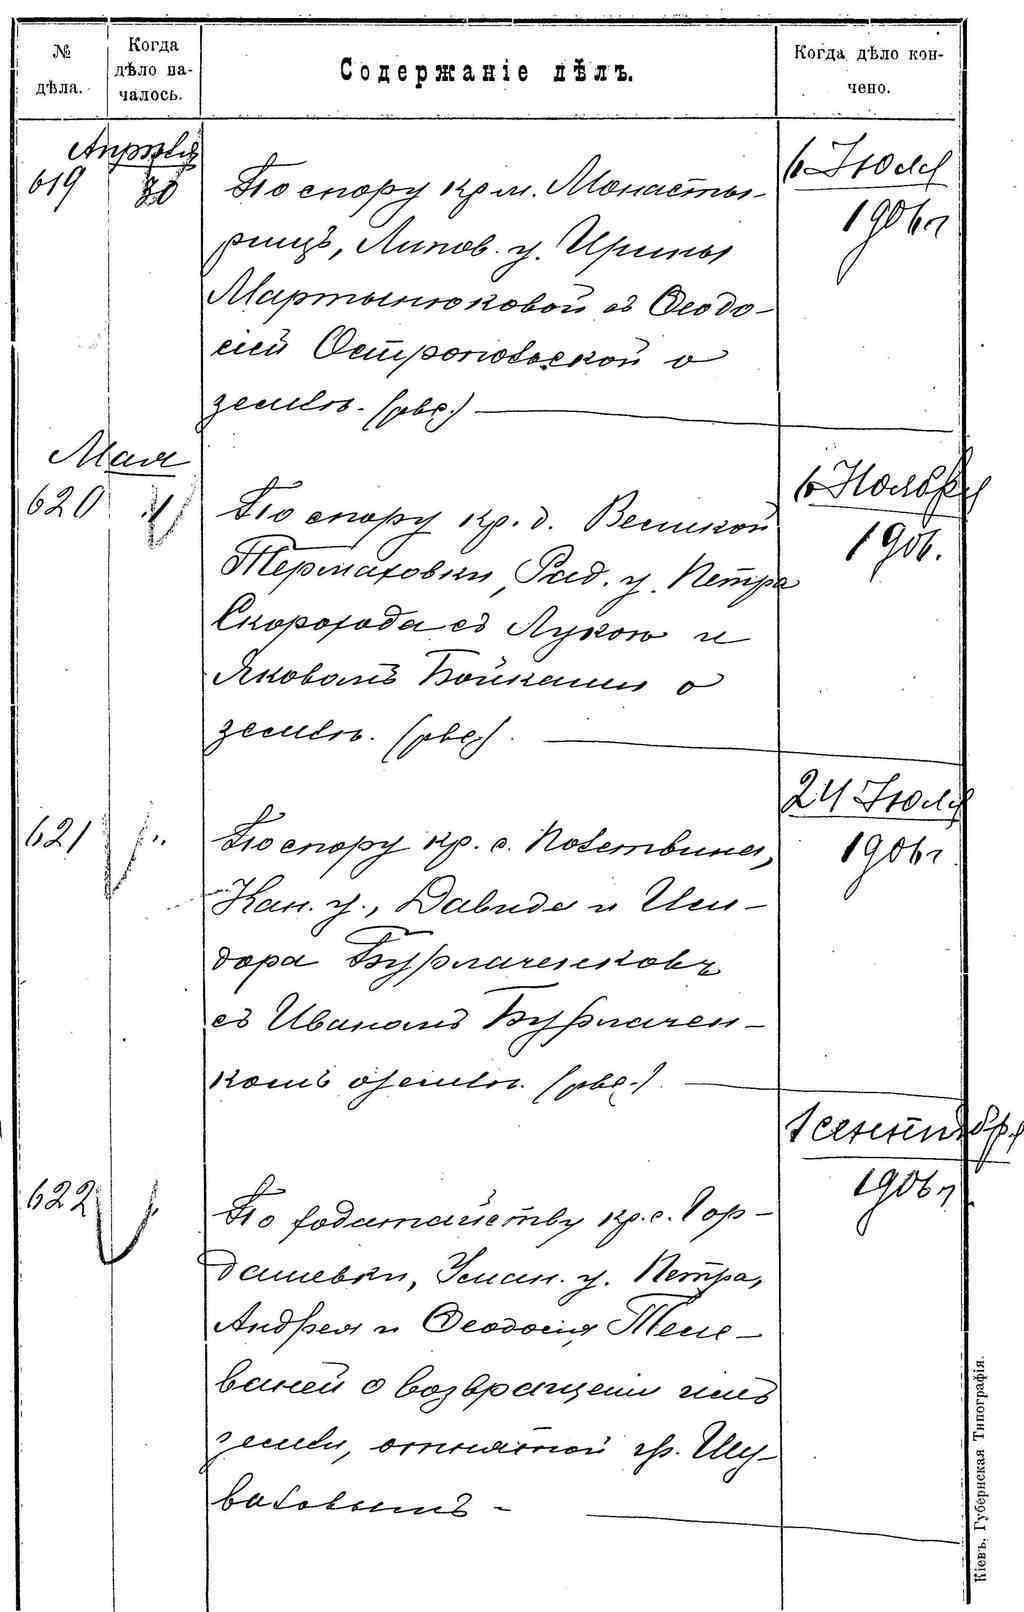 № дѣла.
Когда дѣло на-
чалось.
Содержаніе дѣлъ.
Когда дѣло кон-
чено.
Апрѣля
619 30
По спору кр. м. Монасты-
рищъ, Липов. у. Ирины
Мартынюковой съ Ѳеодо-
сіей Островской о
землѣ. (рвс.)
6 Іюля
1906 г
Мая
620 1
По спору кр. д. Великой
Термаховки, Рад. у. Петра
Скорохода съ Лукою и
Яковомъ Бойками о
землѣ. (рвс.)
6 Ноября
1906.
621 "
По спору кр. с. Потствина,
Кан. у., Давида и Иси-
дора Бурлаченковъ
съ Иваномъ Бурлачен-
комъ о землѣ. (рвс.)
24 Іюля
1906 г
622
По ходатайству кр. с. Гор-
дашевки, Уман. у. Петра,
Андрея и Ѳеодосія
о возвращеніи имъ
земли, отнятой гр. Шу-
валовымъ -
1 сентября
1906 г
Кіевъ, Губернская Типографія.